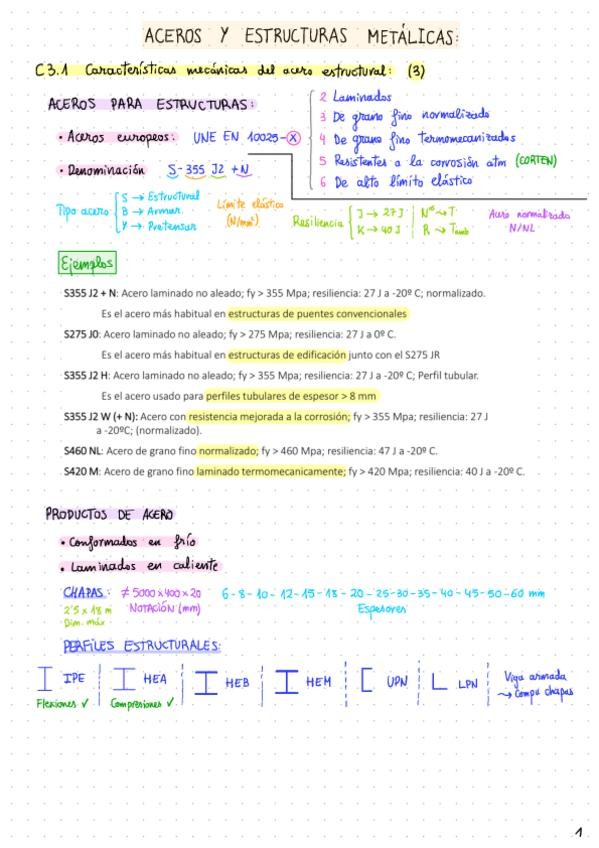 ACEROS Y ESTRUCTURAS METÁLICAS:
C3.1 Características mecánicas del acero estructural: (3)
ACEROS PARA ESTRUCTURAS:
• Aceros europeos: UNE EN 10025-X
2 Laminados
3 De grano fino normalizado
4 De grano fino termomecanizados
5 Resistentes a la corrosión atm (CORTEN)
6 De alto límito elástico
• Denominación S-355 J2 +N
Tipo acero
S → Estructural
B → Armar
Y → Pretensar
Límite elástico
(N/mm²)
Resiliencia
J → 27J
K → 40J
Nº → T
R → Tamb
Acero normalizado
N/NL
Ejemplos
S355 J2 + N: Acero laminado no aleado; fy > 355 Mpa; resiliencia: 27 J a -20º C; normalizado.
Es el acero más habitual en estructuras de puentes convencionales
S275 J0: Acero laminado no aleado; fy > 275 Mpa; resiliencia: 27 J a 0º C.
Es el acero más habitual en estructuras de edificación junto con el S275 JR
S355 J2 H: Acero laminado no aleado; fy > 355 Mpa; resiliencia: 27 J a -20º C; Perfil tubular.
Es el acero usado para perfiles tubulares de espesor > 8 mm
S355 J2 W (+ N): Acero con resistencia mejorada a la corrosión; fy > 355 Mpa; resiliencia: 27 J
a -20ºC; (normalizado).
S460 NL: Acero de grano fino normalizado; fy > 460 Mpa; resiliencia: 47 J a -20º C.
S420 M: Acero de grano fino laminado termomecanicamente; fy > 420 Mpa; resiliencia: 40 J a -20º C.
PRODUCTOS DE ACERO
• Conformados en frío
• Laminados en caliente
CHAPAS: ≠ 5000x400x20 6-8-10-12-15-18-20-25-30-35-40-45-50-60 mm
2'5 x 18 m NOTACIÓN (mm) Espesores
Dim. máx.
PERFILES ESTRUCTURALES:
IPE HEA HEB HEM UPN LPN Viga armada
→ Compu chapas
Flexiones ✓ Compresiones ✓
1